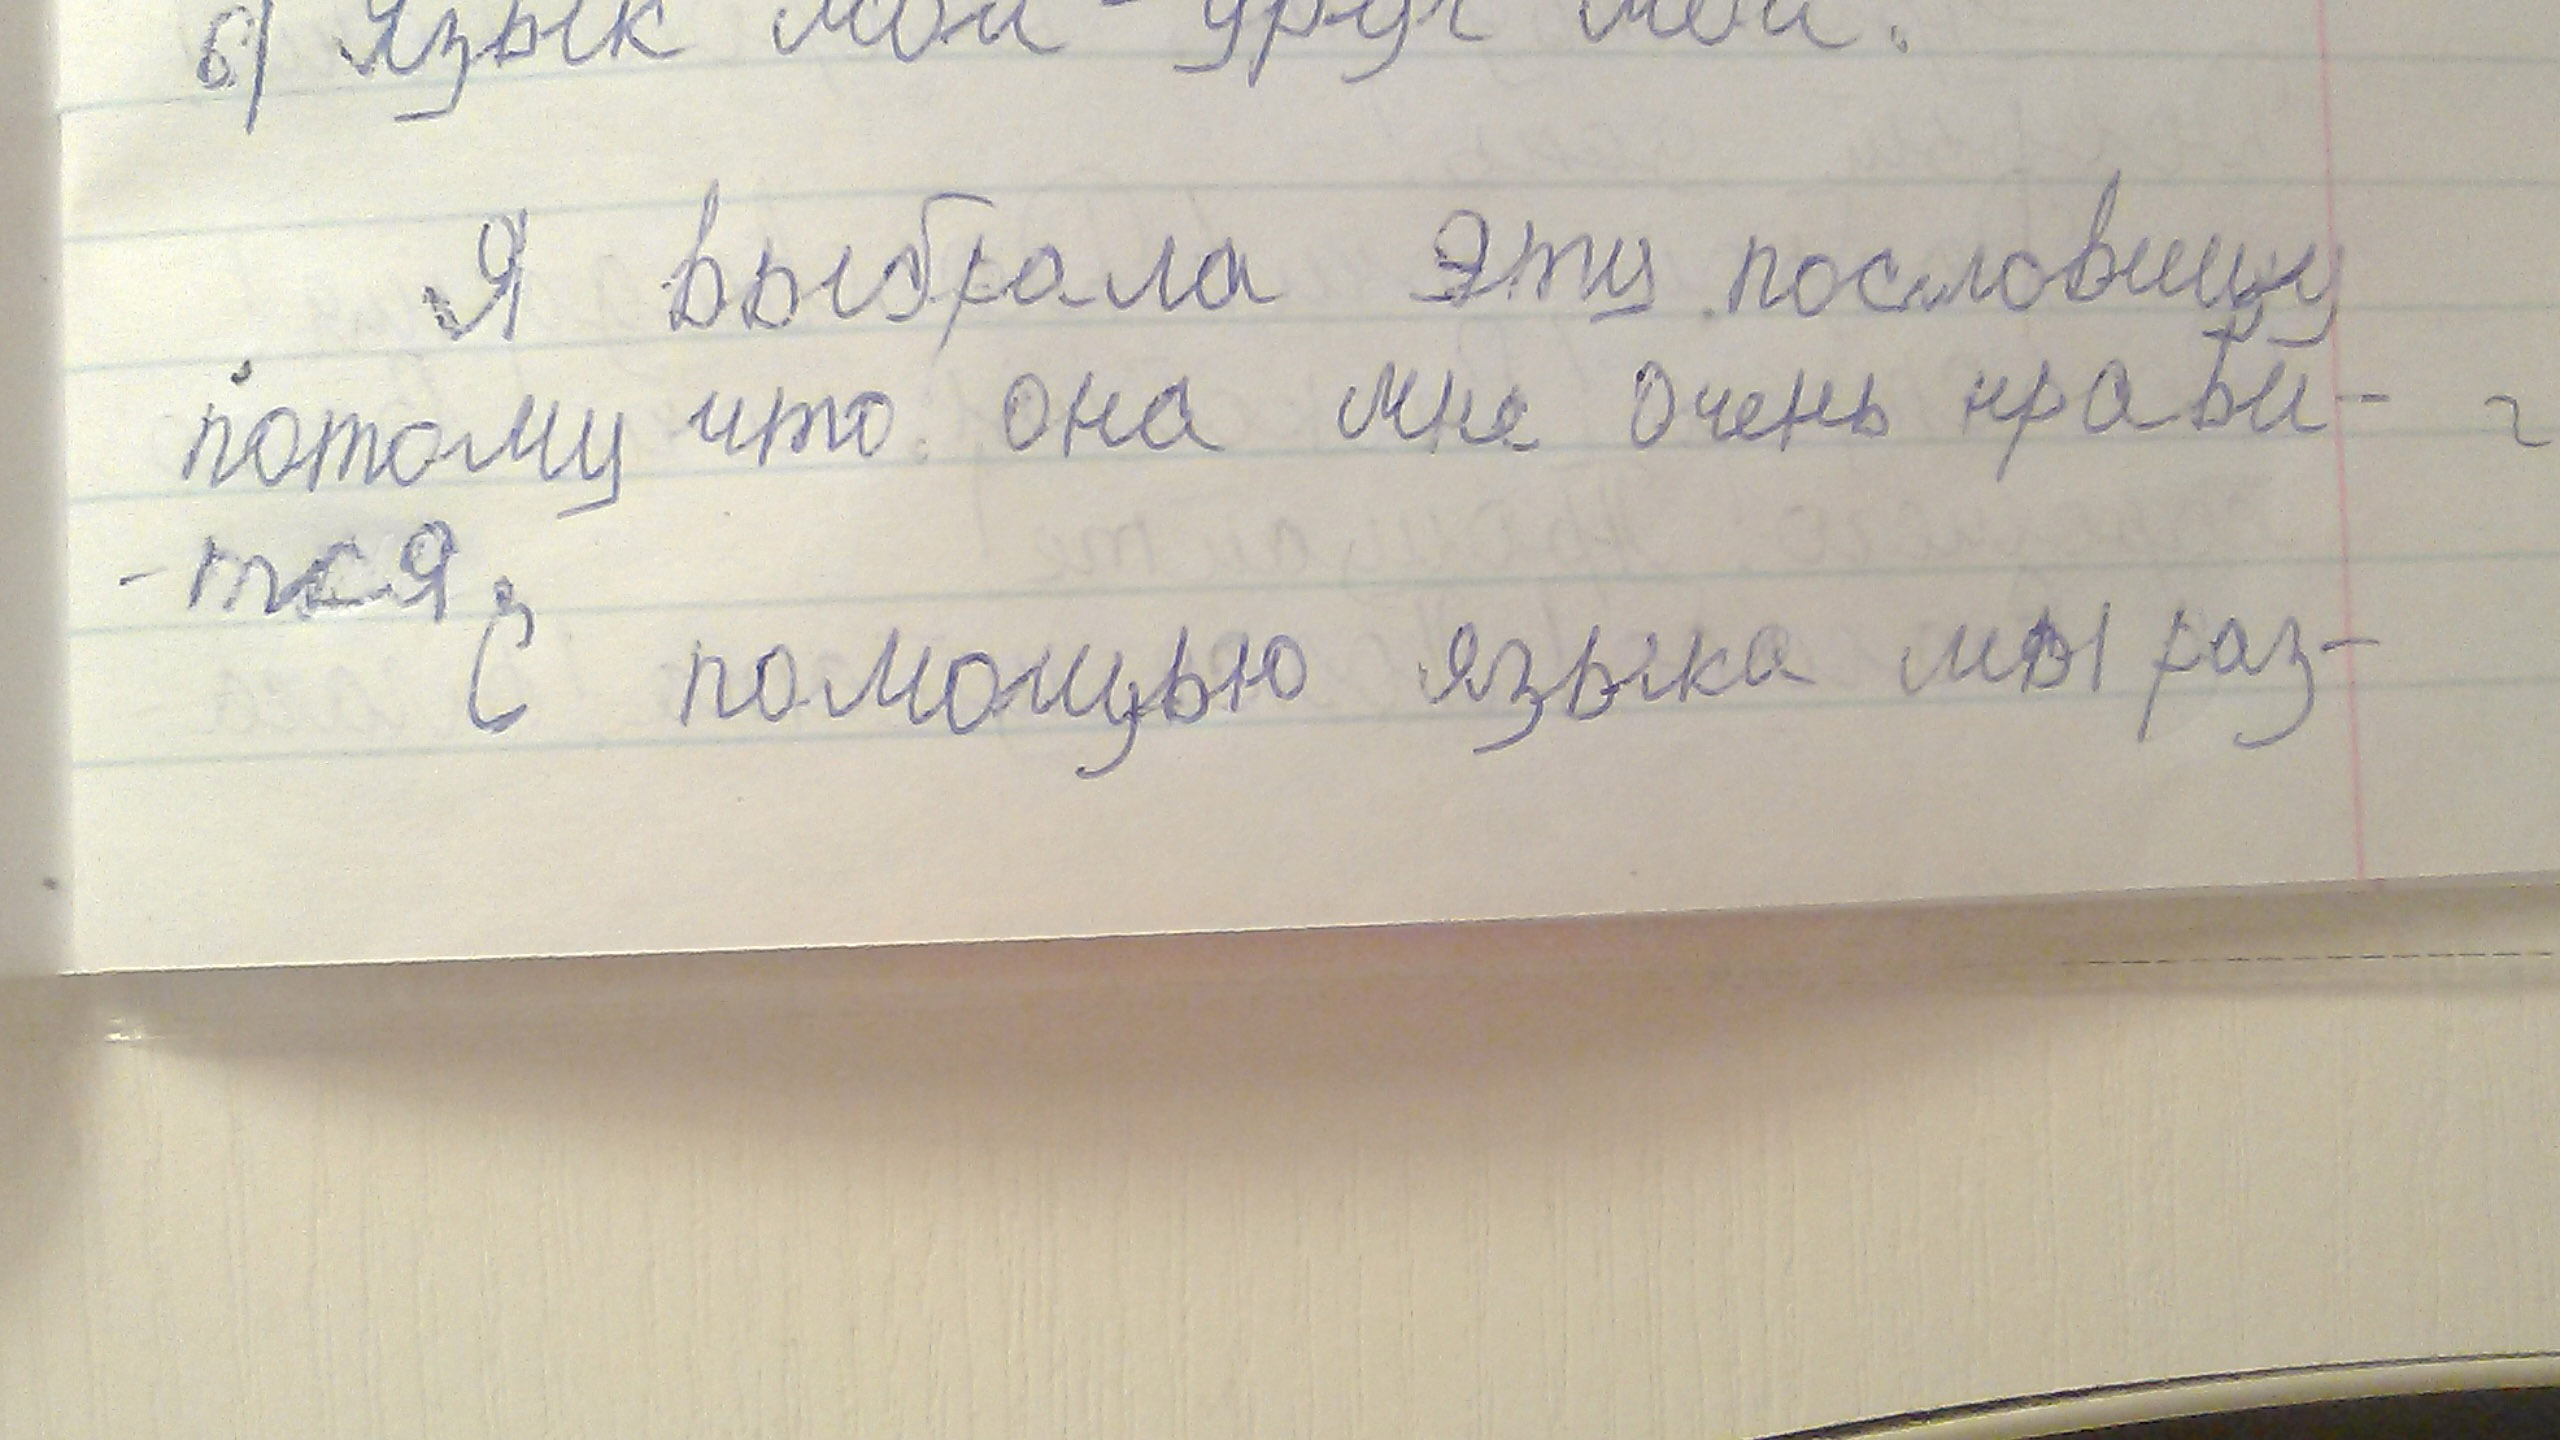 б) Язык мой - друг мой.
Я выбрала эту пословицу
потому что она мне очень нрави-
-тся.
С помощью языка мы раз-